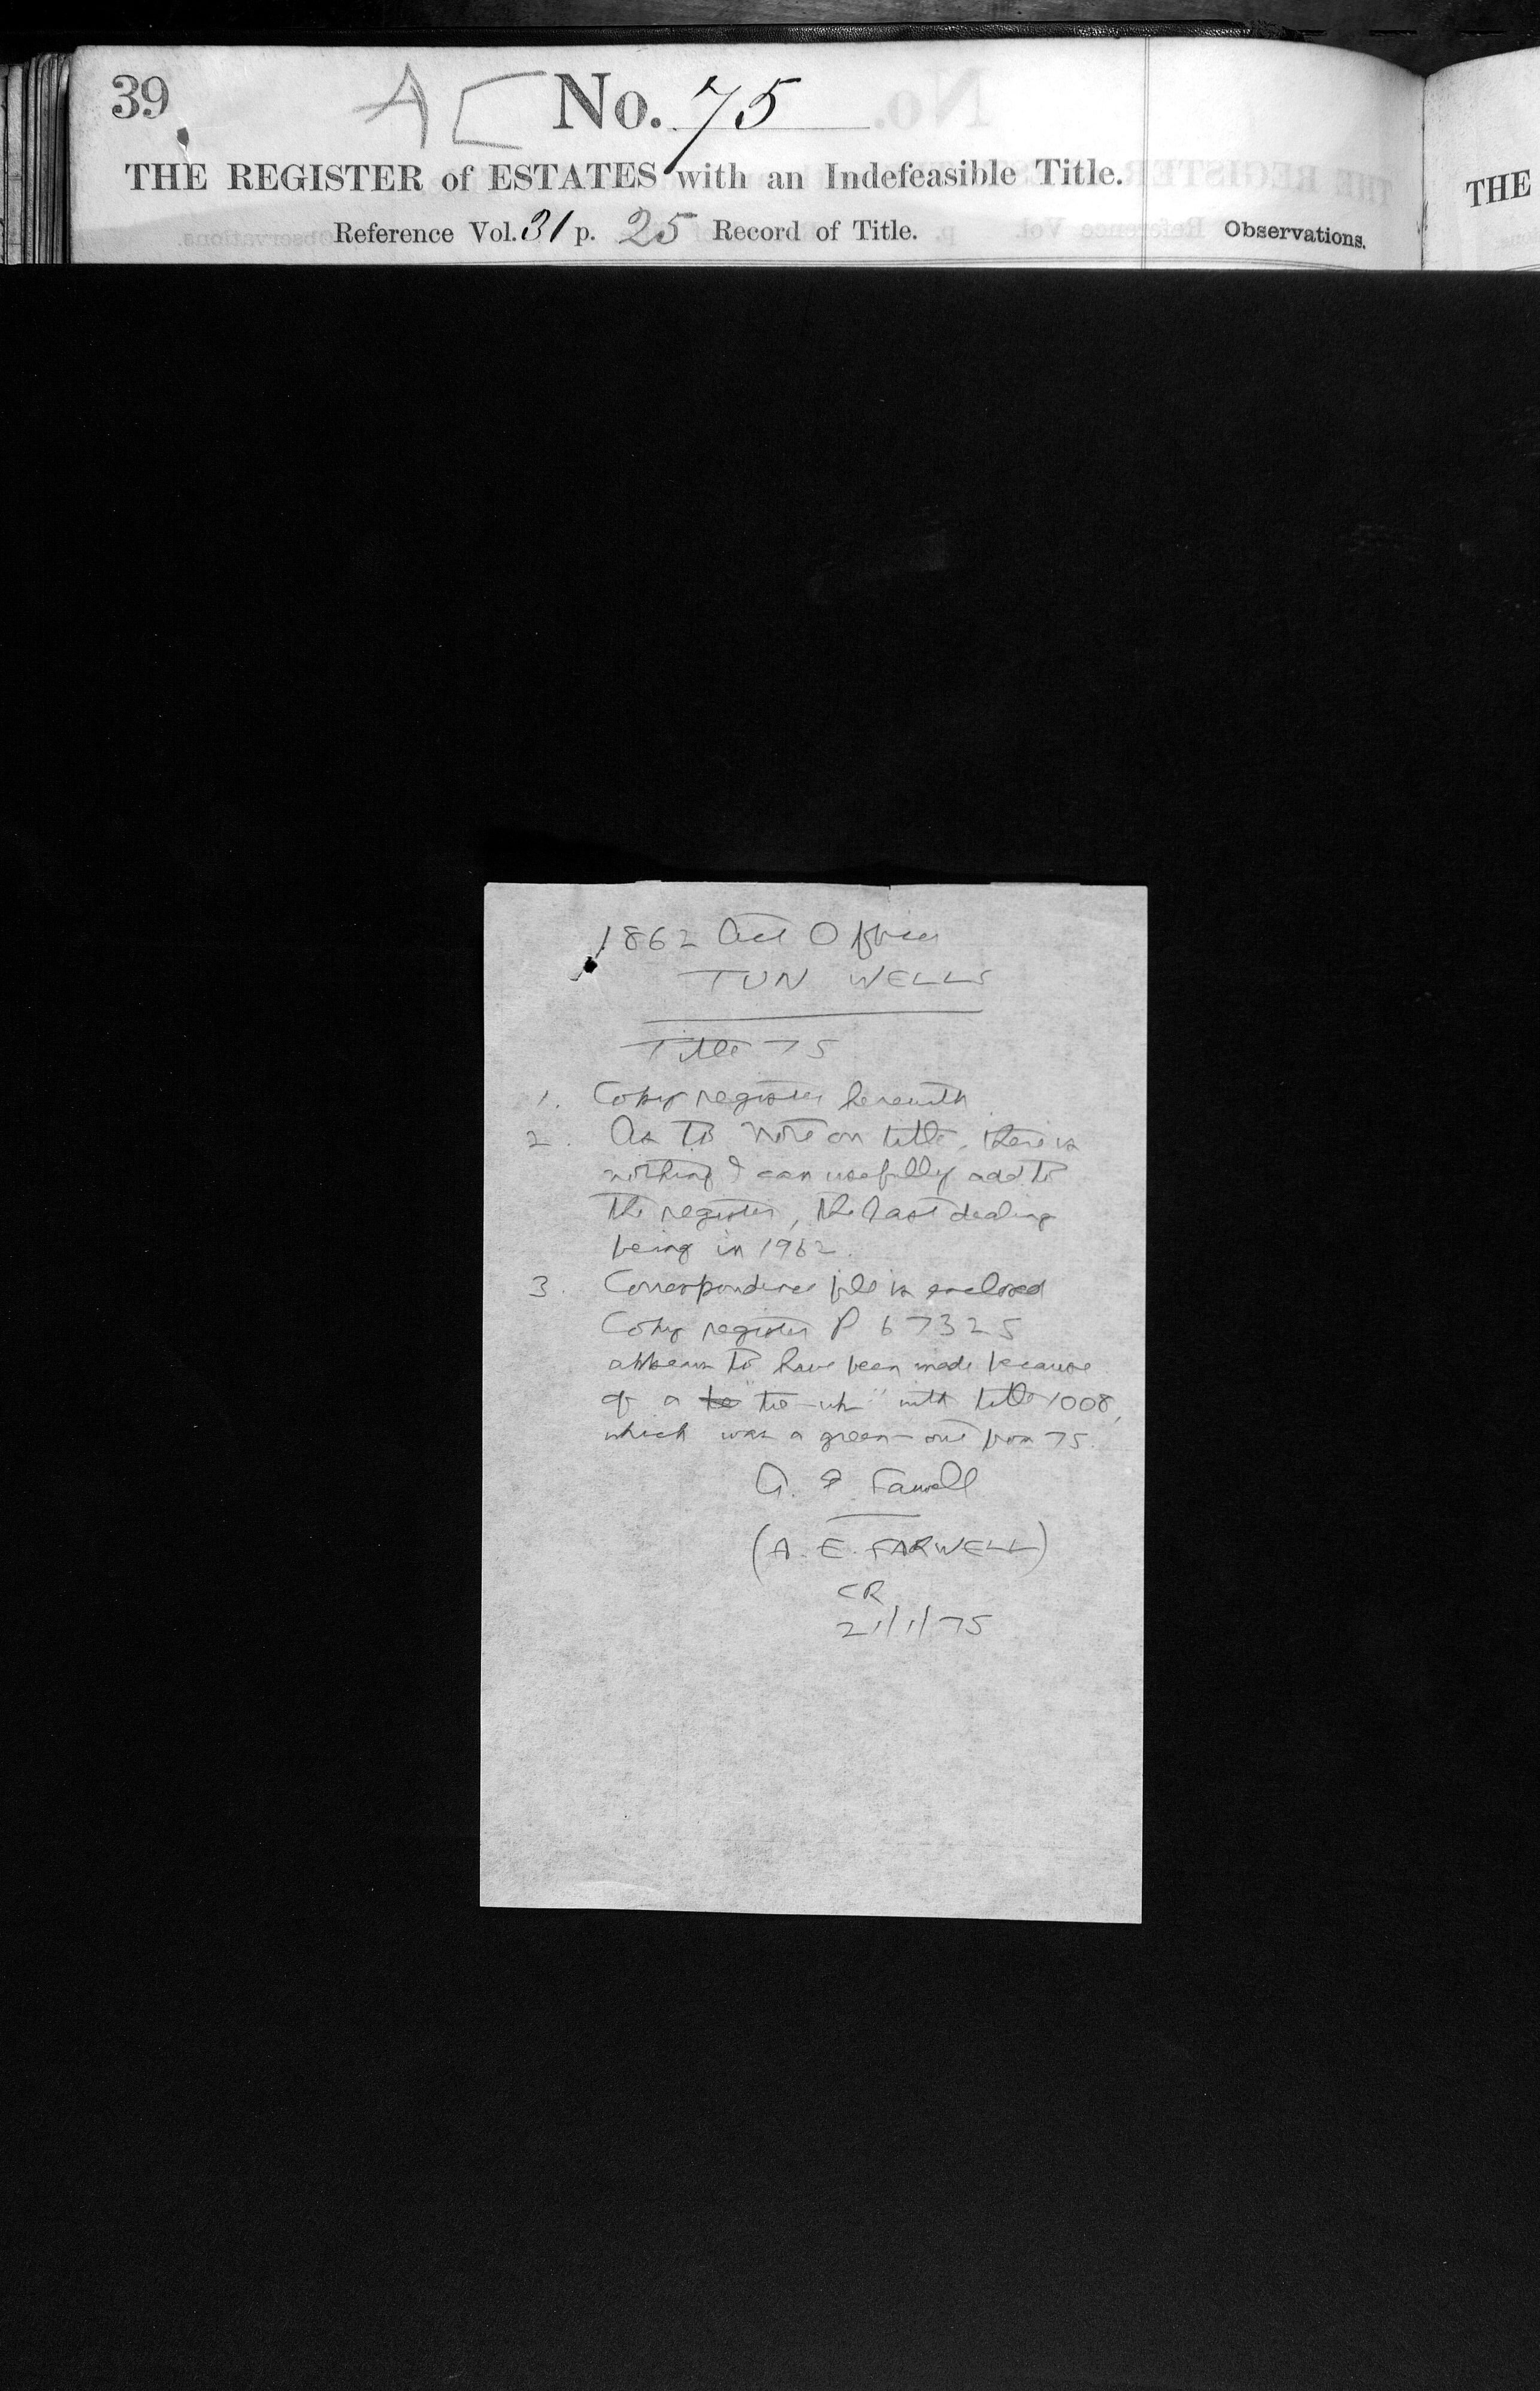 39 A[ No. 75
THE REGISTER of ESTATES with an Indefeasible Title.
Reference Vol. 31 p. 25 Record of Title.
Observations.
THE
1862 Act Officer
TUN WELLS
Title 75
1. Copy register herewith
2. As to note on title, there is
nothing I can usefully add to
the register, the last dealing
being in 1962.
3. Correspondence file is enclosed
Copy register P 67325
appears to have been made because
of a "tie-up" with title 1008,
which was a green-out from 75.
A. E. Farwell
(A. E. FARWELL)
CR
21/1/75